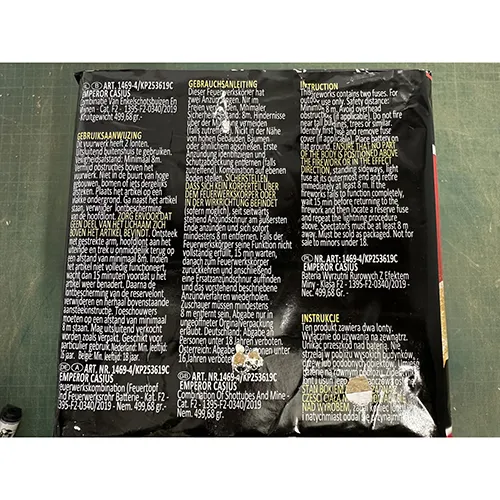 ART. 1469-4/KP253619C
EMPEROR CASIUS
Combinatie Van Enkelschotsbuizen En
Mijnen - Cat. F2 - 1395-F2-0340/2019 -
Kruitgewicht 499,68 gr.-
GEBRUIKSAANWIJZING
Dit vuurwerk heeft 2 lonten.
Uitsluitend buitenshuis te gebruiken.
Veiligheidsafstand: Minimaal 8m.
Vermijd obstructies boven het
vuurwerk. Niet in de buurt van hoge
gebouwen, bomen of iets dergelijks
afsteken. Plaats het artikel op een
vlakke ondergrond. Ga naast het artikel
staan, verwijder
van de hoofdlont. ZORG ERVOOR DAT
GEEN DEEL VAN HET LICHAAM ZICH
BOVEN HET ARTIKEL BEVINDT. Ontsteek
met gestrekte arm, hoofdlont aan het
uiteinde en trek u onmiddellijk terug op
een afstand van minimaal 8m. Indien
het artikel niet volledig functioneert,
wacht dan 15 minuten voordat u het
artikel weer benadert. Daarna de
ontbescherming van de reservelont
verwijderen en herhaal bovenstaande
aansteekinstructie. Toeschouwers
moeten op een afstand van minimaal
8 m staan. Mag uitsluitend verkocht
worden zoals verpakt. Geschikt voor
particulier gebruik. Nederland: Min. lft. 16
jaar. België: Min. lft. 18 jaar.
DE A ART. 1469-4/KP253619C
EMPEROR CASIUS
Feuerwerkskombination (Feuertopf
und Feuerwerksrohr Batterie - Kat. F2 -
1395-F2-0340/2019 - Nem. 499,68 gr.-
GEBRAUCHSANLEITUNG
Dieser Feuerwerkskörper hat
zwei Anzündungen. Nur im
Freien verwenden. Minimaler
Sicherheitsabstand: 8m. Hindernisse
über der Mündung
vermeiden. Nicht in der Nähe
von hohen Gebäuden, Bäumen
oder ähnlichem abschießen. Erste
Anzündung identifizieren und
Schutzabdeckung entfernen (falls
zutreffend). Kontrollieren Sie den
ebenen Boden, SICHERSTELLEN
DASS SICH KEIN KÖRPERTEIL ÜBER
DEM FEUERWERKSKÖRPER ODER
IN DER WIRKRICHTUNG BEFINDET
(sofern möglich), seit seitwärts
stehend Anzündung am äußersten
Ende anzünden und sich sofort
mindestens 8 m entfernen. Falls der
Feuerwerkskörper seine Funktion nicht
vollständig erfüllt, 15 min warten,
danach zum Feuerwerkskörper
zurückkehren und anschließend
eine Ersatzanzündung entfernen
und das vorstehend beschriebene
Anzündverfahren wiederholen.
Zuschauer müssen mindestens
8 m entfernt sein. Abgabe nur in
ungeöffneter Originalverpackung
erlaubt. Deutschland: Abgabe an
Personen unter 18 Jahren verboten.
Österreich: Abgabe an Personen unter
16 Jahren verboten.
GB ART. 1469-4/KP253619C
EMPEROR CASIUS
Combination Of Shottubes And Mine -
Cat. F2 - 1395-F2-0340/2019 -
Nem. 499,68 gr.-
INTRUCTION
The fireworks contains two fuses. For
outdoor use only. Safety distance:
Minimum 8 m. Avoid overhead
obstruction (if applicable). Do not fire
near tall buildings, trees or similar.
Identify first fuse and remove fuse
cover (if applicable). Place battery
on flat ground. ENSURE THAT NO PART
OF THE BODY IS POSITIONED ABOVE
THE FIREWORK OR IN THE EFFECT
DIRECTION, standing sideways, light
fuse at its outermost end, and retire
immediately at least 8 m. If the
fireworks fails to function completely,
wait 15 min before returning to the
firework and then locate a reserve fuse
and repeat the lightning procedure
above. Spectators must be at least 8 m
away. Must be sold as packaged. Not for
sale to minors under 18.
PL NR. ART. 1469-4/KP253619C
EMPEROR CASIUS
Bateria Wyrzutni Rurowych Z Efektem
Miny - Klasa F2 - 1395-F2-0340/2019 -
Nec. 499,68 Gr.-
INSTRUKCJE
Ten produkt zawiera dwa lonty.
Wyłącznie do używania na zewnątrz.
Unikać przeszkód nad baterią. Nie
strzelaj w pobliżu wysokich budynków,
NAD WYROBEM,